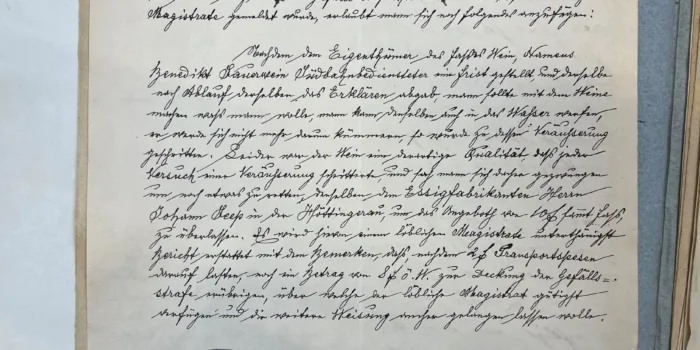 Magistrate gemeldet wurde, erlaubt mann sich noch folgendes anzufügen:
Nachdem dem Eigenthümer des Faßes Wein, Namens
Benedikt Bauerwein Südbahnbediensteter ein Frist gestellt und derselbe
nach Ablauf derselben das Erklären abgab, mann sollte mit dem Weine
machen wahs mann wolle, mann kann denselben auch in das Wasser werfen,
er werde sich nicht mehr darum kümmern, so wurde zu dessen Veräusserung
geschritten. Leider war der Wein ein derartige Qualität, daß jeder
Versuch einer Veräusserung scheitterte und sah mann sich daher gezwungen
um noch etwas zu retten, denselben dem Essigfabrikanten Herrn
Johann in der Höttingerau, um das Angeboth von 10 f sammt Faß,
zu überlassen. Es wird hievon einem löblichen Magistrate unterthänigst
Bericht erstattet mit dem Bemerken, daß, nachdem 2 f Transportspesen
darauf lasten, noch ein Betrag von 8 f ö. W. zur Deckung der Gefälls=
strafe erübrigen, über welche der löbliche Magistrat gütigst
verfügen und die weitere Weisung anher gelangen lassen wolle.